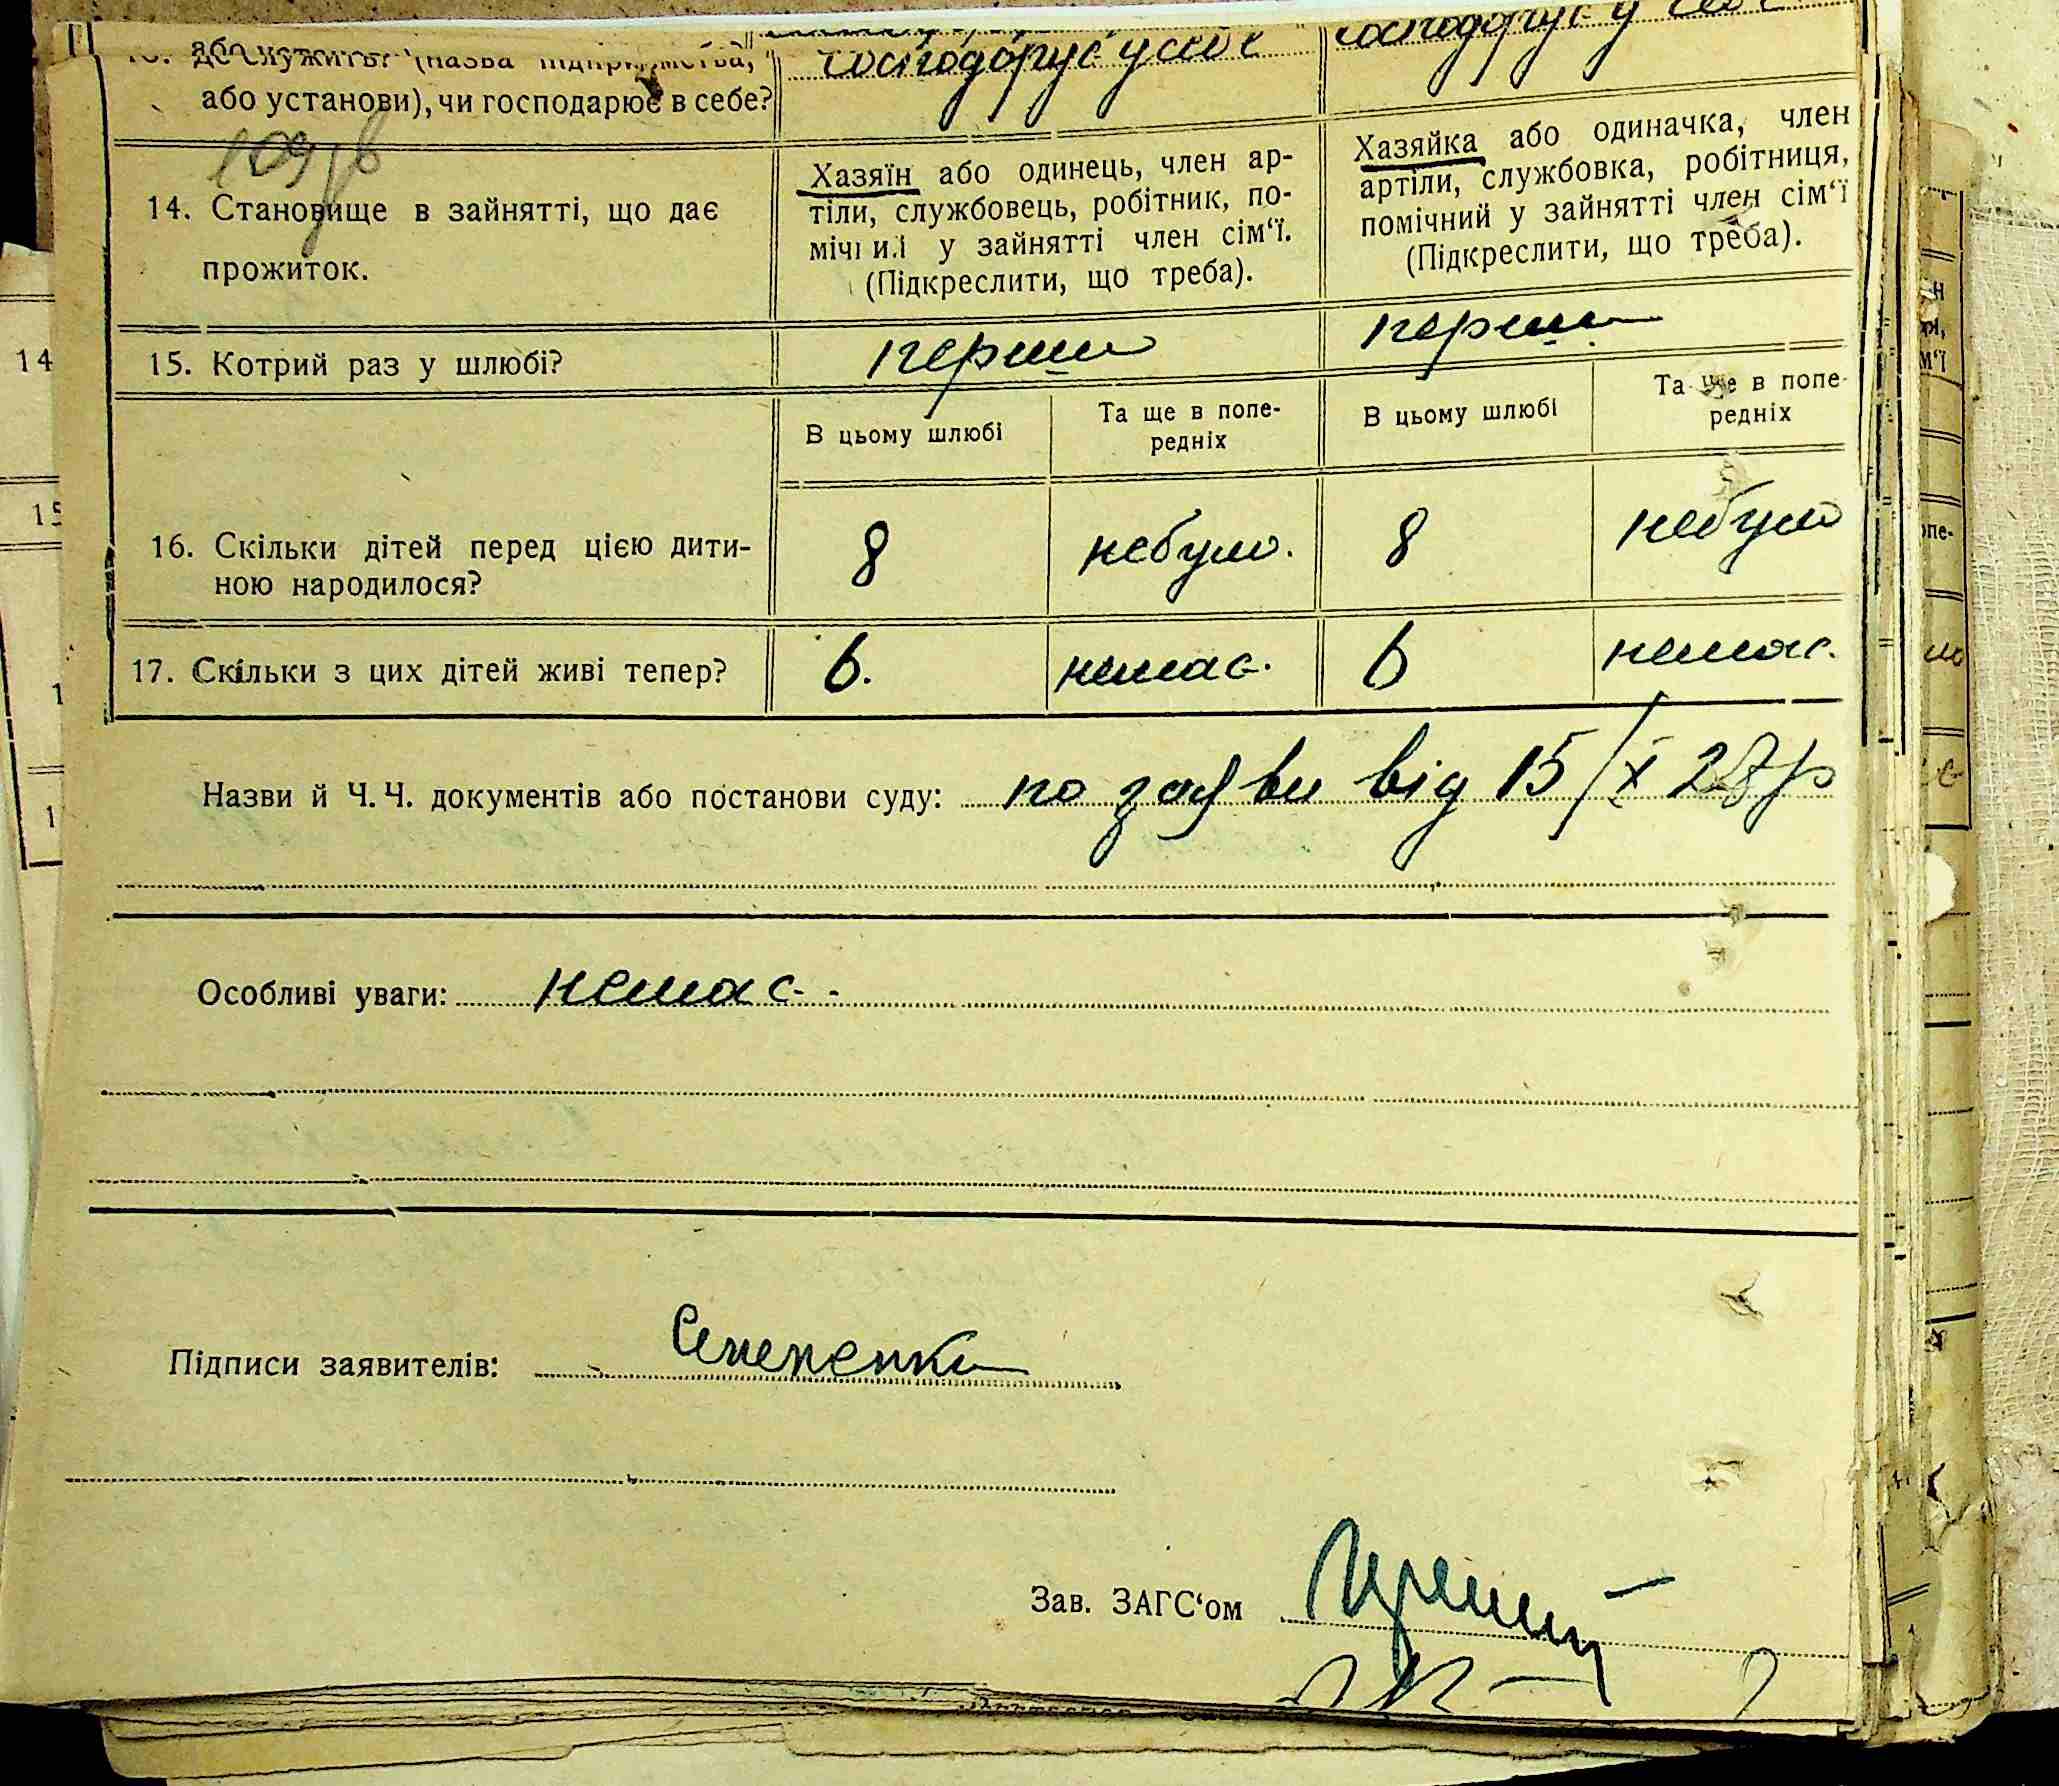 або служить? (назва підприємства,
або установи), чи господарює в себе?
господорує у себе
господорує у себе
14. Становище в зайнятті, що дає
прожиток.
Хазяїн або одинець, член ар-
тіли, службовець, робітник, по-
мічний у зайнятті член сім‘ї.
(Підкреслити, що треба).
Хазяйка або одиначка, член
артіли, службовка, робітниця,
помічний у зайнятті член сім‘ї
(Підкреслити, що треба).
15. Котрий раз у шлюбі?
перши
перши
В цьому шлюбі
Та ще в попе-
редніх
В цьому шлюбі
Та ще в попе-
редніх
16. Скільки дітей перед цією дити-
ною народилося?
8
небуло.
8
небуло
17. Скільки з цих дітей живі тепер?
6.
немає.
6
немає.
Назви й Ч. Ч. документів або постанови суду: по заяви від 15/X 28р
Особливі уваги: немає.
Підписи заявителів:
Зав. ЗАГС‘ом
14
15